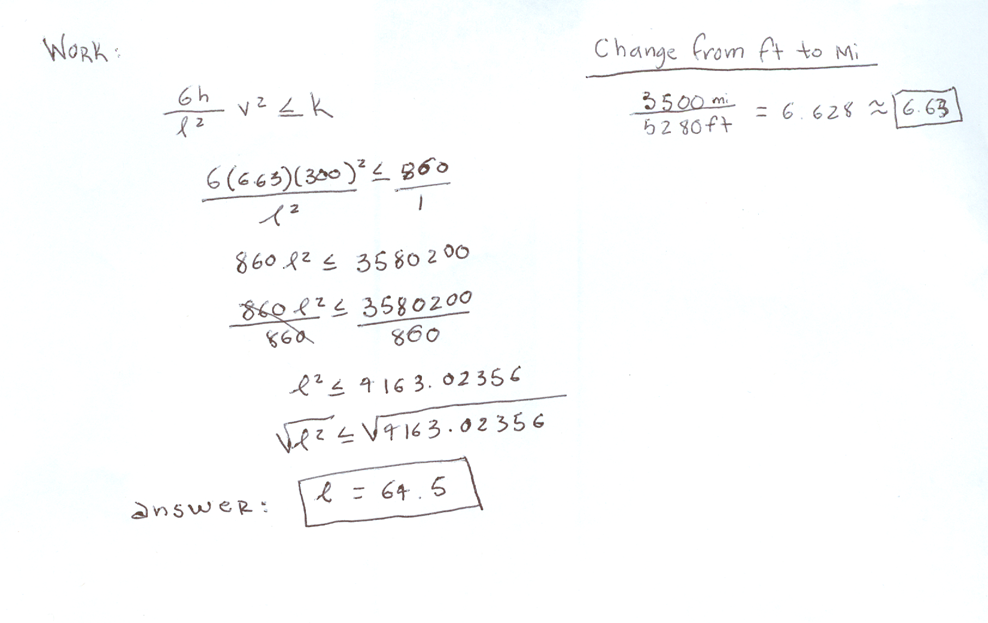 WORK:
6h/l² v² ≤ k
6(6.63)(300)²/l² ≤ 860/1
860 l² ≤ 3580200
860 l²/860 ≤ 3580200/860
l² ≤ 4163.02356
√l² ≤ √4163.02356
answer: l = 64.5
Change from ft to Mi
3500 mi/5280 ft = 6.628 ≈ 6.63